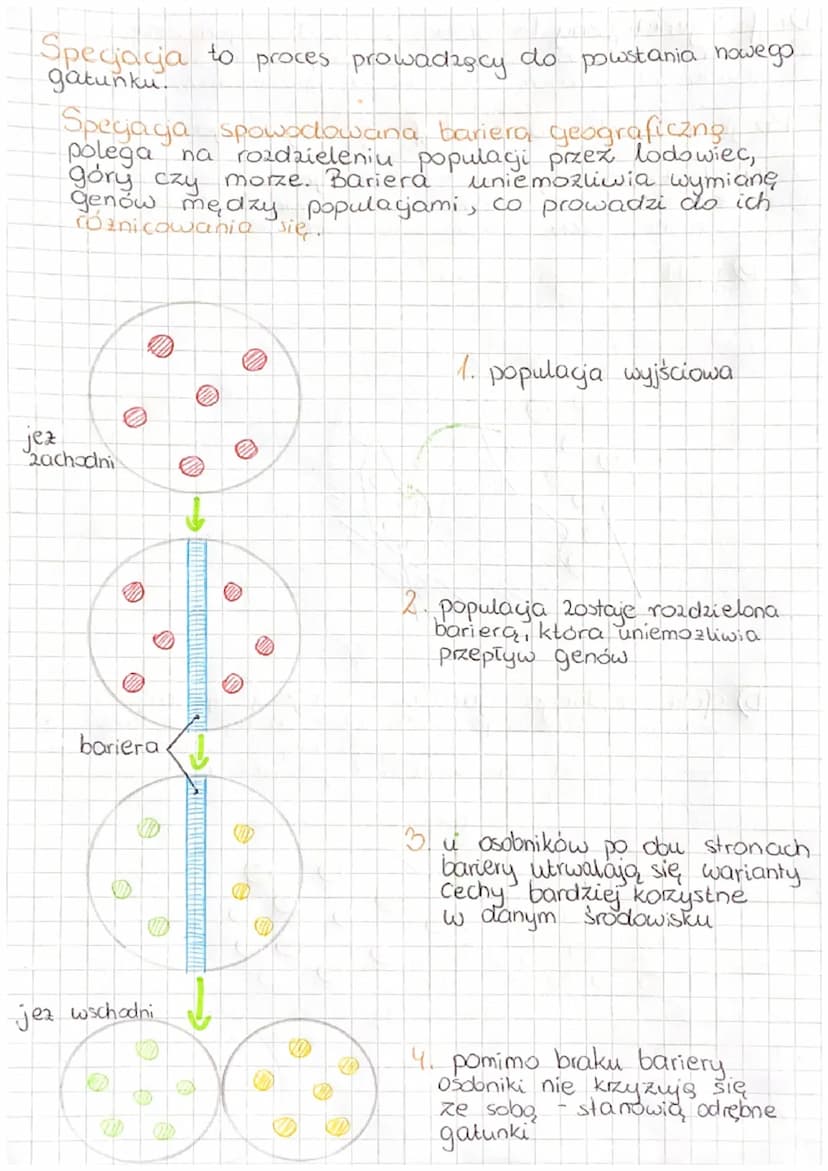 Specjacja to proces prowadzący do powstania nowego
gatunku.
Specjacja spowodowana barierą geograficzną
polega na rozdzieleniu populacji przez lodowiec,
góry czy morze. Bariera uniemożliwia wymianę
genów mędzy populacjami, co prowadzi do ich
różnicowania się.
1. populacja wyjściowa
jeż
zachodni
2. populacja zostaje rozdzielona
barierą, która uniemożliwia
przepływ genów
bariera
3. u osobników po obu stronach
bariery utrwalają się warianty
cechy bardziej korzystne
w danym środowisku
jeż wschodni
4. pomimo braku bariery
osobniki nie krzyżują się
ze sobą - stanowią odrębne
gatunki